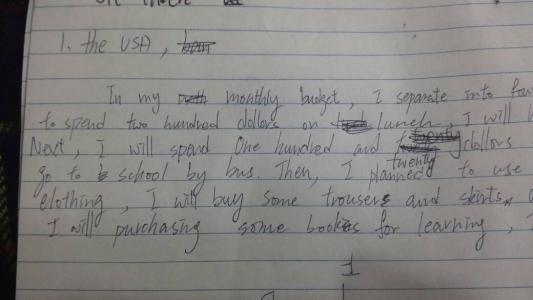 on
1. the USA,
In my monthly budget, I separate into four
to spend two hundred dollars on lunch, I will
Next, I will spend One hundred and twenty dollars
go to school by bus. Then, I planned to use
clothing, I will buy some trousers and skirts,
I will purchasing some bookes for learning,
1